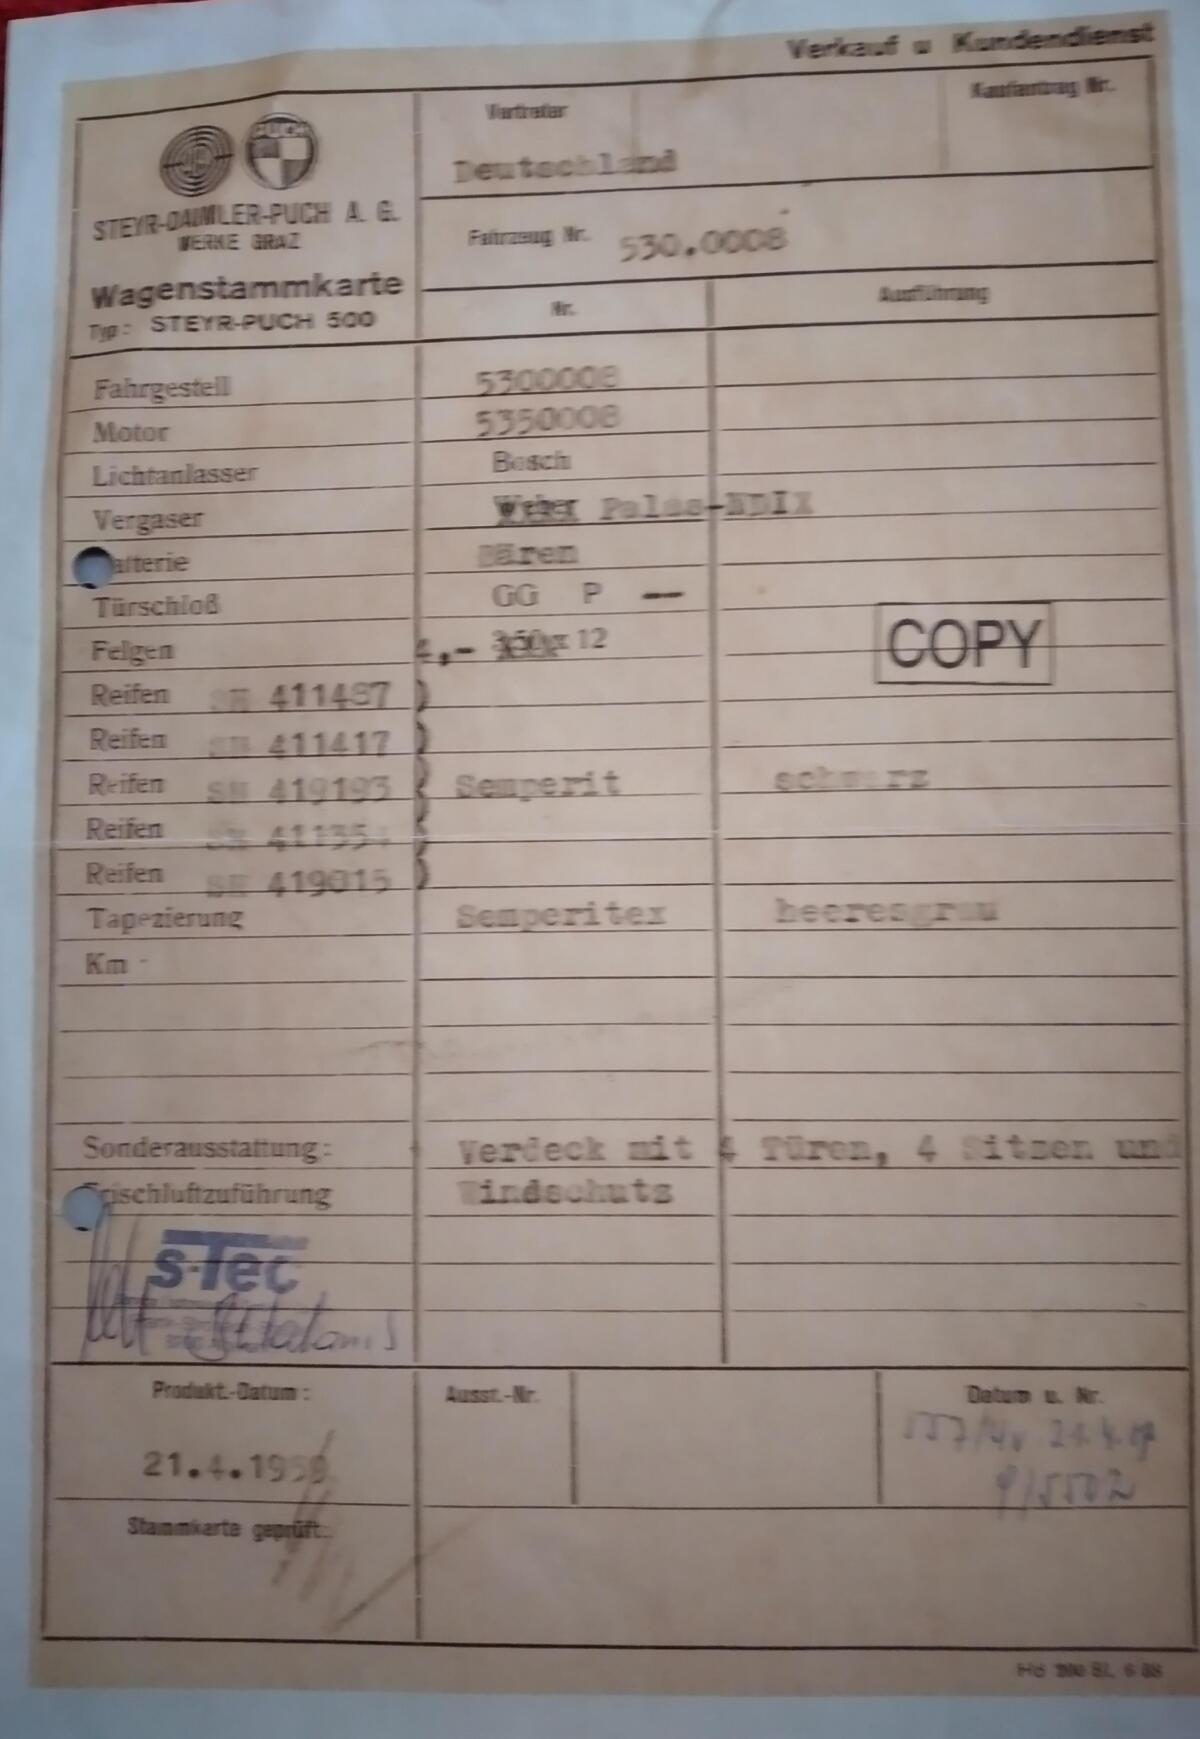 Verkauf u Kundendienst
PUCH
STEYR-DAIMLER-PUCH A. G.
WERKE GRAZ
Wagenstammkarte
Typ: STEYR-PUCH 500
Vertreter
Kaufantrag Nr.
Deutschland
Fahrzeug Nr. 530.0008
Nr. Ausführung
Fahrgestell 5300008
Motor 5350008
Lichtanlasser Bosch
Vergaser Weber Palas-NDIX
Batterie Bären
Türschloß GG P —
Felgen 4,- 350x 12
COPY
Reifen SH 411487 )
Reifen SH 411417 )
Reifen SH 419193 ) Semperit schwarz
Reifen SH 411354 )
Reifen SH 419015 )
Tapezierung Semperitex heeresgrau
Km
Sonderausstattung: Verdeck mit 4 Türen, 4 Sitzen und
Frischluftzuführung Windschutz
s-Tec
Produkt.-Datum: Ausst.-Nr. Datum u. Nr.
21.4.1959
Stammkarte geprüft: